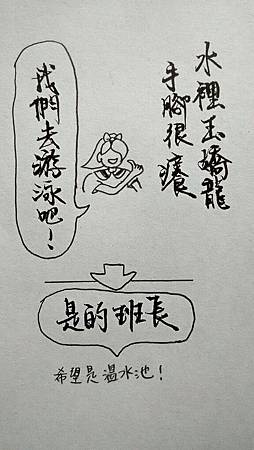 水裡玉嬌龍
手腳很癢
我們去游泳吧！
是的班長
希望是溫水池！